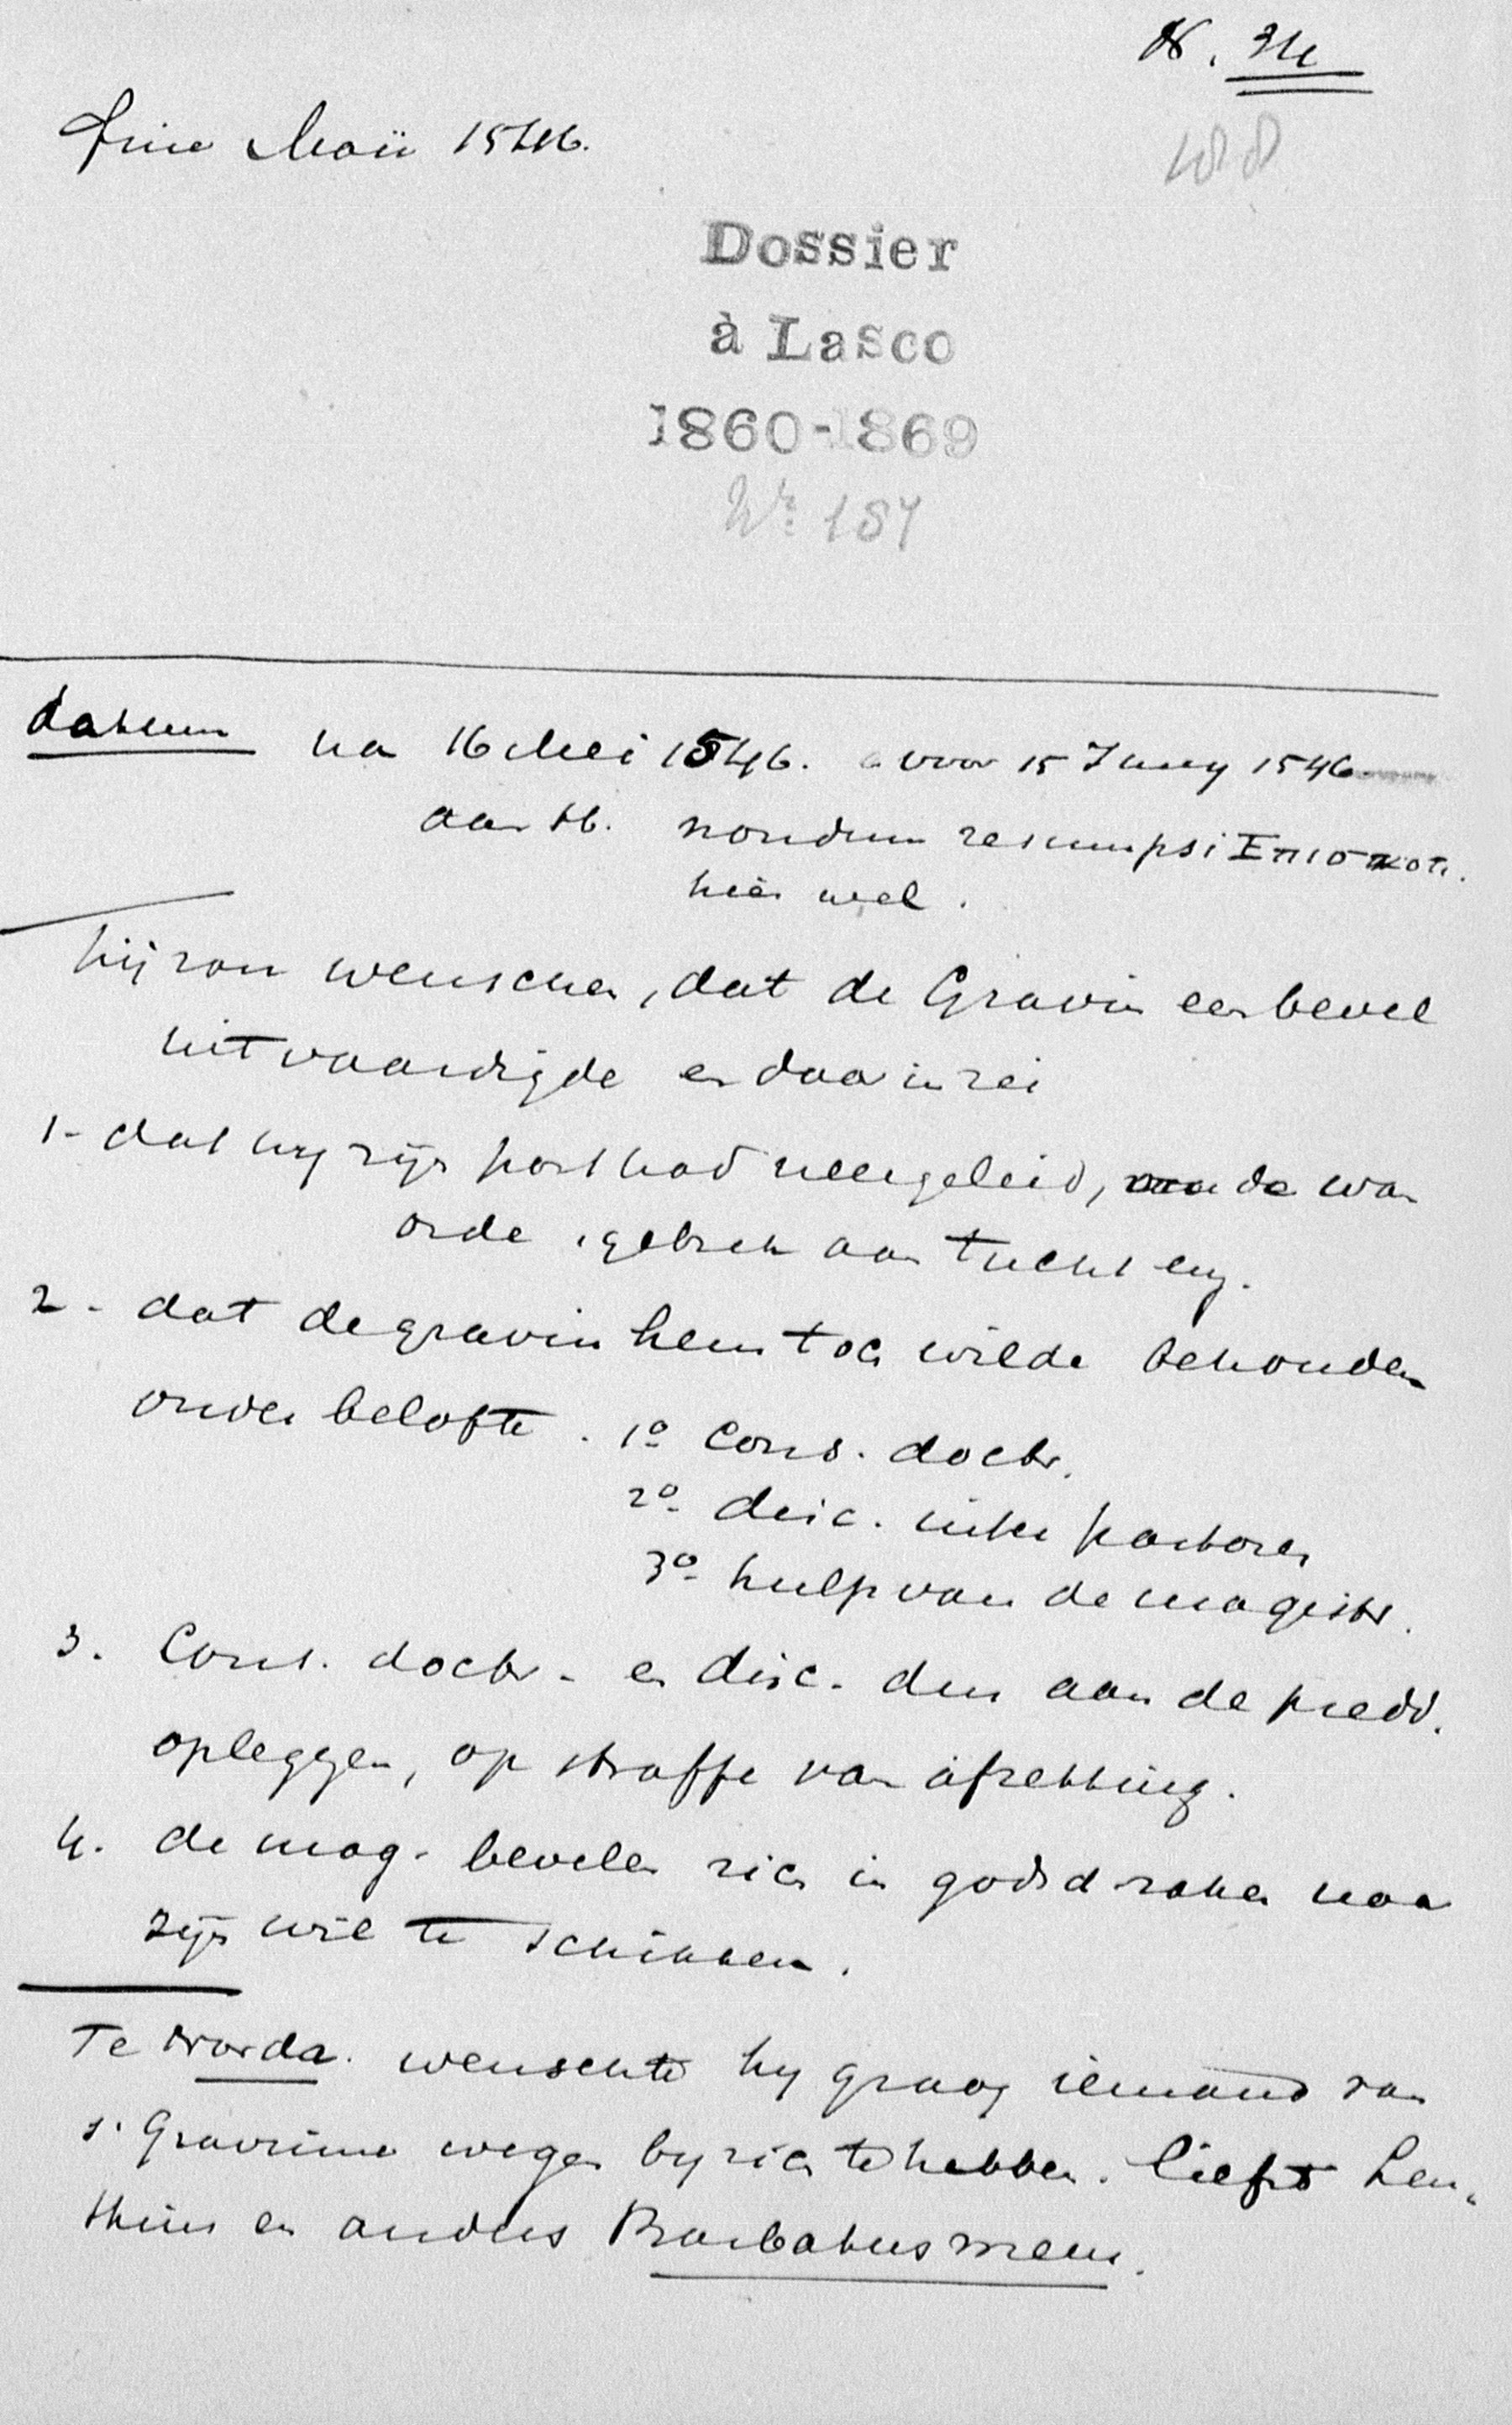 N. 34
fine Maii 1546.
188
Dossier
à Lasco
1860-1869
Nr. 187
datum na 16 Mei 1546. voor 15 Juny 1546
aan H. nondum resumpsi Επισκοπ.
hier wel.
hij zou wenschen, dat de Gravin een bevel
uitvaardigde en daarin zei
1- dat hy zijn post had neergeleid, om de wan
orde, gebrek aan tucht enz.
2- dat de gravin hem toch wilde behouden
onder belofte. 1º Cons. doctr.
2º disc. inter pastores
3º hulp van de magistr.
3. Cons. doctr. en disc. den aan de predd.
opleggen, op straffe van afzetting.
4. de mag. bevelen zich in godsd zaken naar
zijn wil te schikken.
Te Norda. wenschte hy graag iemand van
s. Gravinne wege by zich te hebben. liefst Len-
thius en anders Barbatus meus.